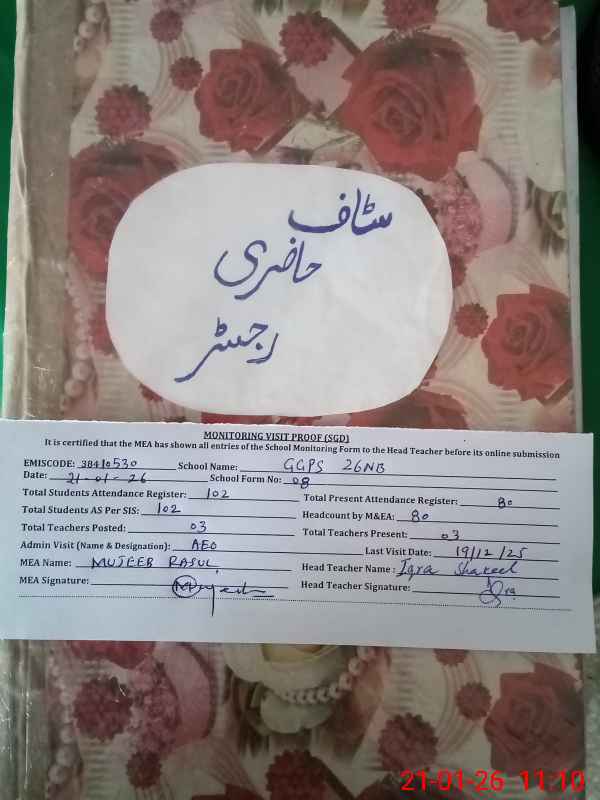 سٹاف
حاضری
رجسٹر
MONITORING VISIT PROOF (SGD)
It is certified that the MEA has shown all entries of the School Monitoring Form to the Head Teacher before its online submission
EMISCODE: 38410530 School Name: GGPS 26NB
Date: 21-01-26 School Form No: 08
Total Students Attendance Register: 102 Total Present Attendance Register: 80
Total Students AS Per SIS: 102 Headcount by M&EA: 80
Total Teachers Posted: 03 Total Teachers Present: 03
Admin Visit (Name & Designation): AEO Last Visit Date: 19/12/25
MEA Name: MUJEEB RASUL Head Teacher Name: Iqra Shakeel
MEA Signature: Head Teacher Signature:
21-01-26 11:10